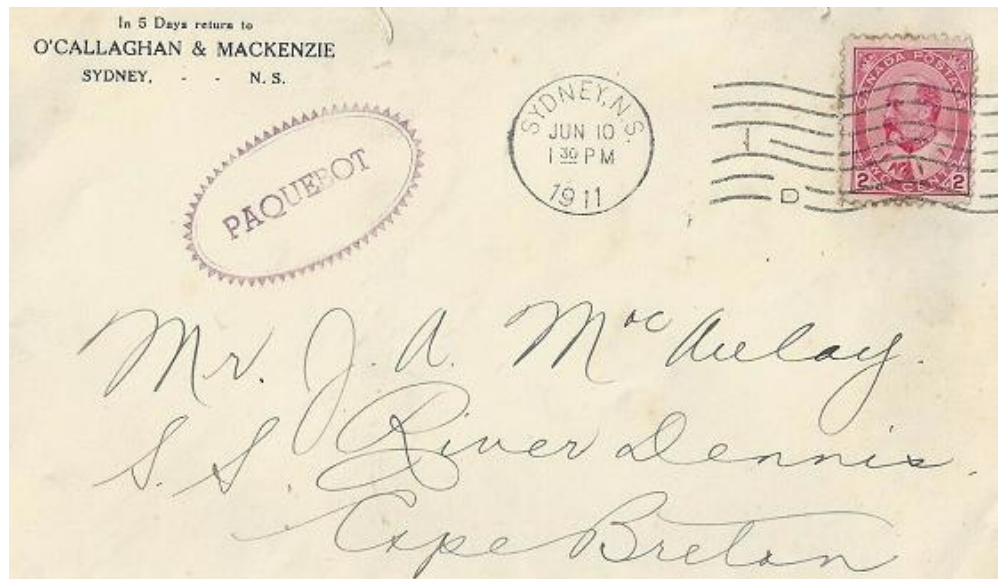 In 5 Days return to
O'CALLAGHAN & MACKENZIE
SYDNEY, - - N. S.
PAQUEBOT
SYDNEY, N.S.
JUN 10
1 30 PM
1911
D
CANADA POSTAGE
2 CENTS 2
Mr. J. A. MacAulay.
S. S. River Dennis.
Cape Breton